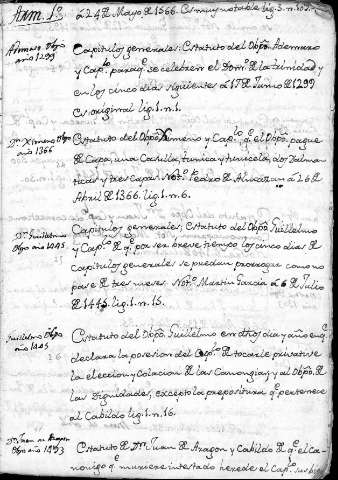 Arm. 1º
á 24 de Mayo de 1366. Es muy notable lig. 3. n.
Ademaro Obpo
año 1299
Capitulos generales. Estatuto del Obpo. Ademaro
y Capº. para q se celebren el Domº de la trinidad y
en los cinco dias siguientes á 17 de Junio de 1299
es original lig. 1. n. 1.
Dn Ximeno Obpo
año 1366
Estatuto del Obpo. Ximeno y Caplo q el Obpo. pague
de Capa, una Casulla, tunica y tunicela, dos Dalma-
ticas y tres capas. Notº Pedro de Almazan á 26 de
Abril de 1366. lig. 1. n. 6.
Dn Guillelmo
Obpo año 1445
Capitulos generales. Estatuto del Obpo. Guillelmo
y Caplo de q por ser breve tiempo los cinco dias de
Capitulos generales se puedan prorrogar como no
pase de tres meses. Notº Martin Garcia á 6 de Julio
de 1445. lig. 1. n. 15.
Guillelmo Obpo
año 1445
Estatuto del Obpo. Guillelmo en dhos dia y año en q
declara la posesion del Caplo de tocarle privative
la eleccion y Colacion de las Canongias, y al Obpo. de
las Dignidades, excepto la prepositura q pertenece
al Cabildo lig. 1. n. 16.
Dn Juan de Aragon
Obpo año 1493
Estatuto de Dn Juan de Aragon y Cabildo de q el Ca-
nonigo q muriere intestado herede el Caplo sus